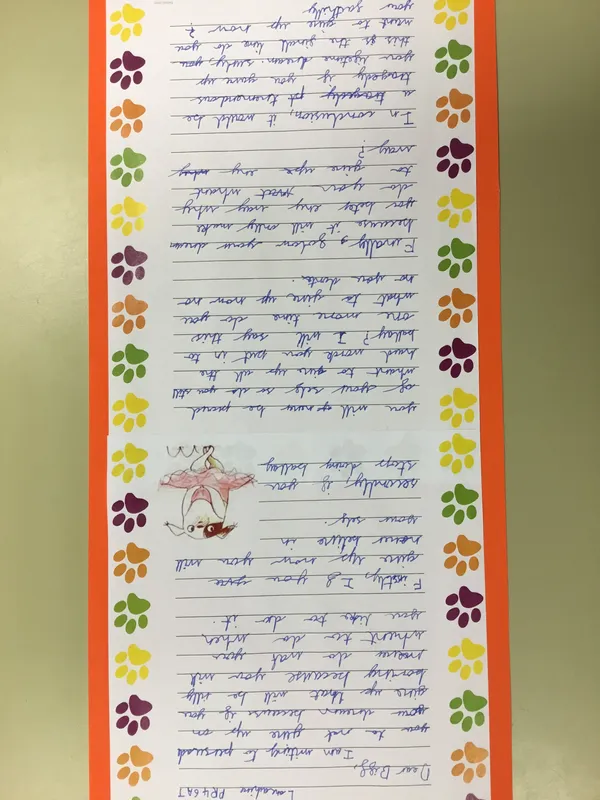 Lancashire PR4 6AJ
Dear Biff,
I am writing to persuade
you to not give up on
your dream because if you
give up that will be silly
boaring because you will
never do wat you
whent to do when
you like to do it.
Firstly, If you give
give up now you will
never belive in
your self.
secondly, if you
stop doing ballay
you will never be proud
of your self so do you still
whant to give up all the
hard work you put in to
ballay? I will say this
one more time do you
what to give up now no
no you donte.
Finally, folow your dream
because it will only make
you happy eny way why
do you whant
to give up eny
way?
In conclusion, it would be
a tremendous
tragedy if you gave up
your lifetime dream. surely,
this is the finall time do you
want to give up now?
your gudhilly